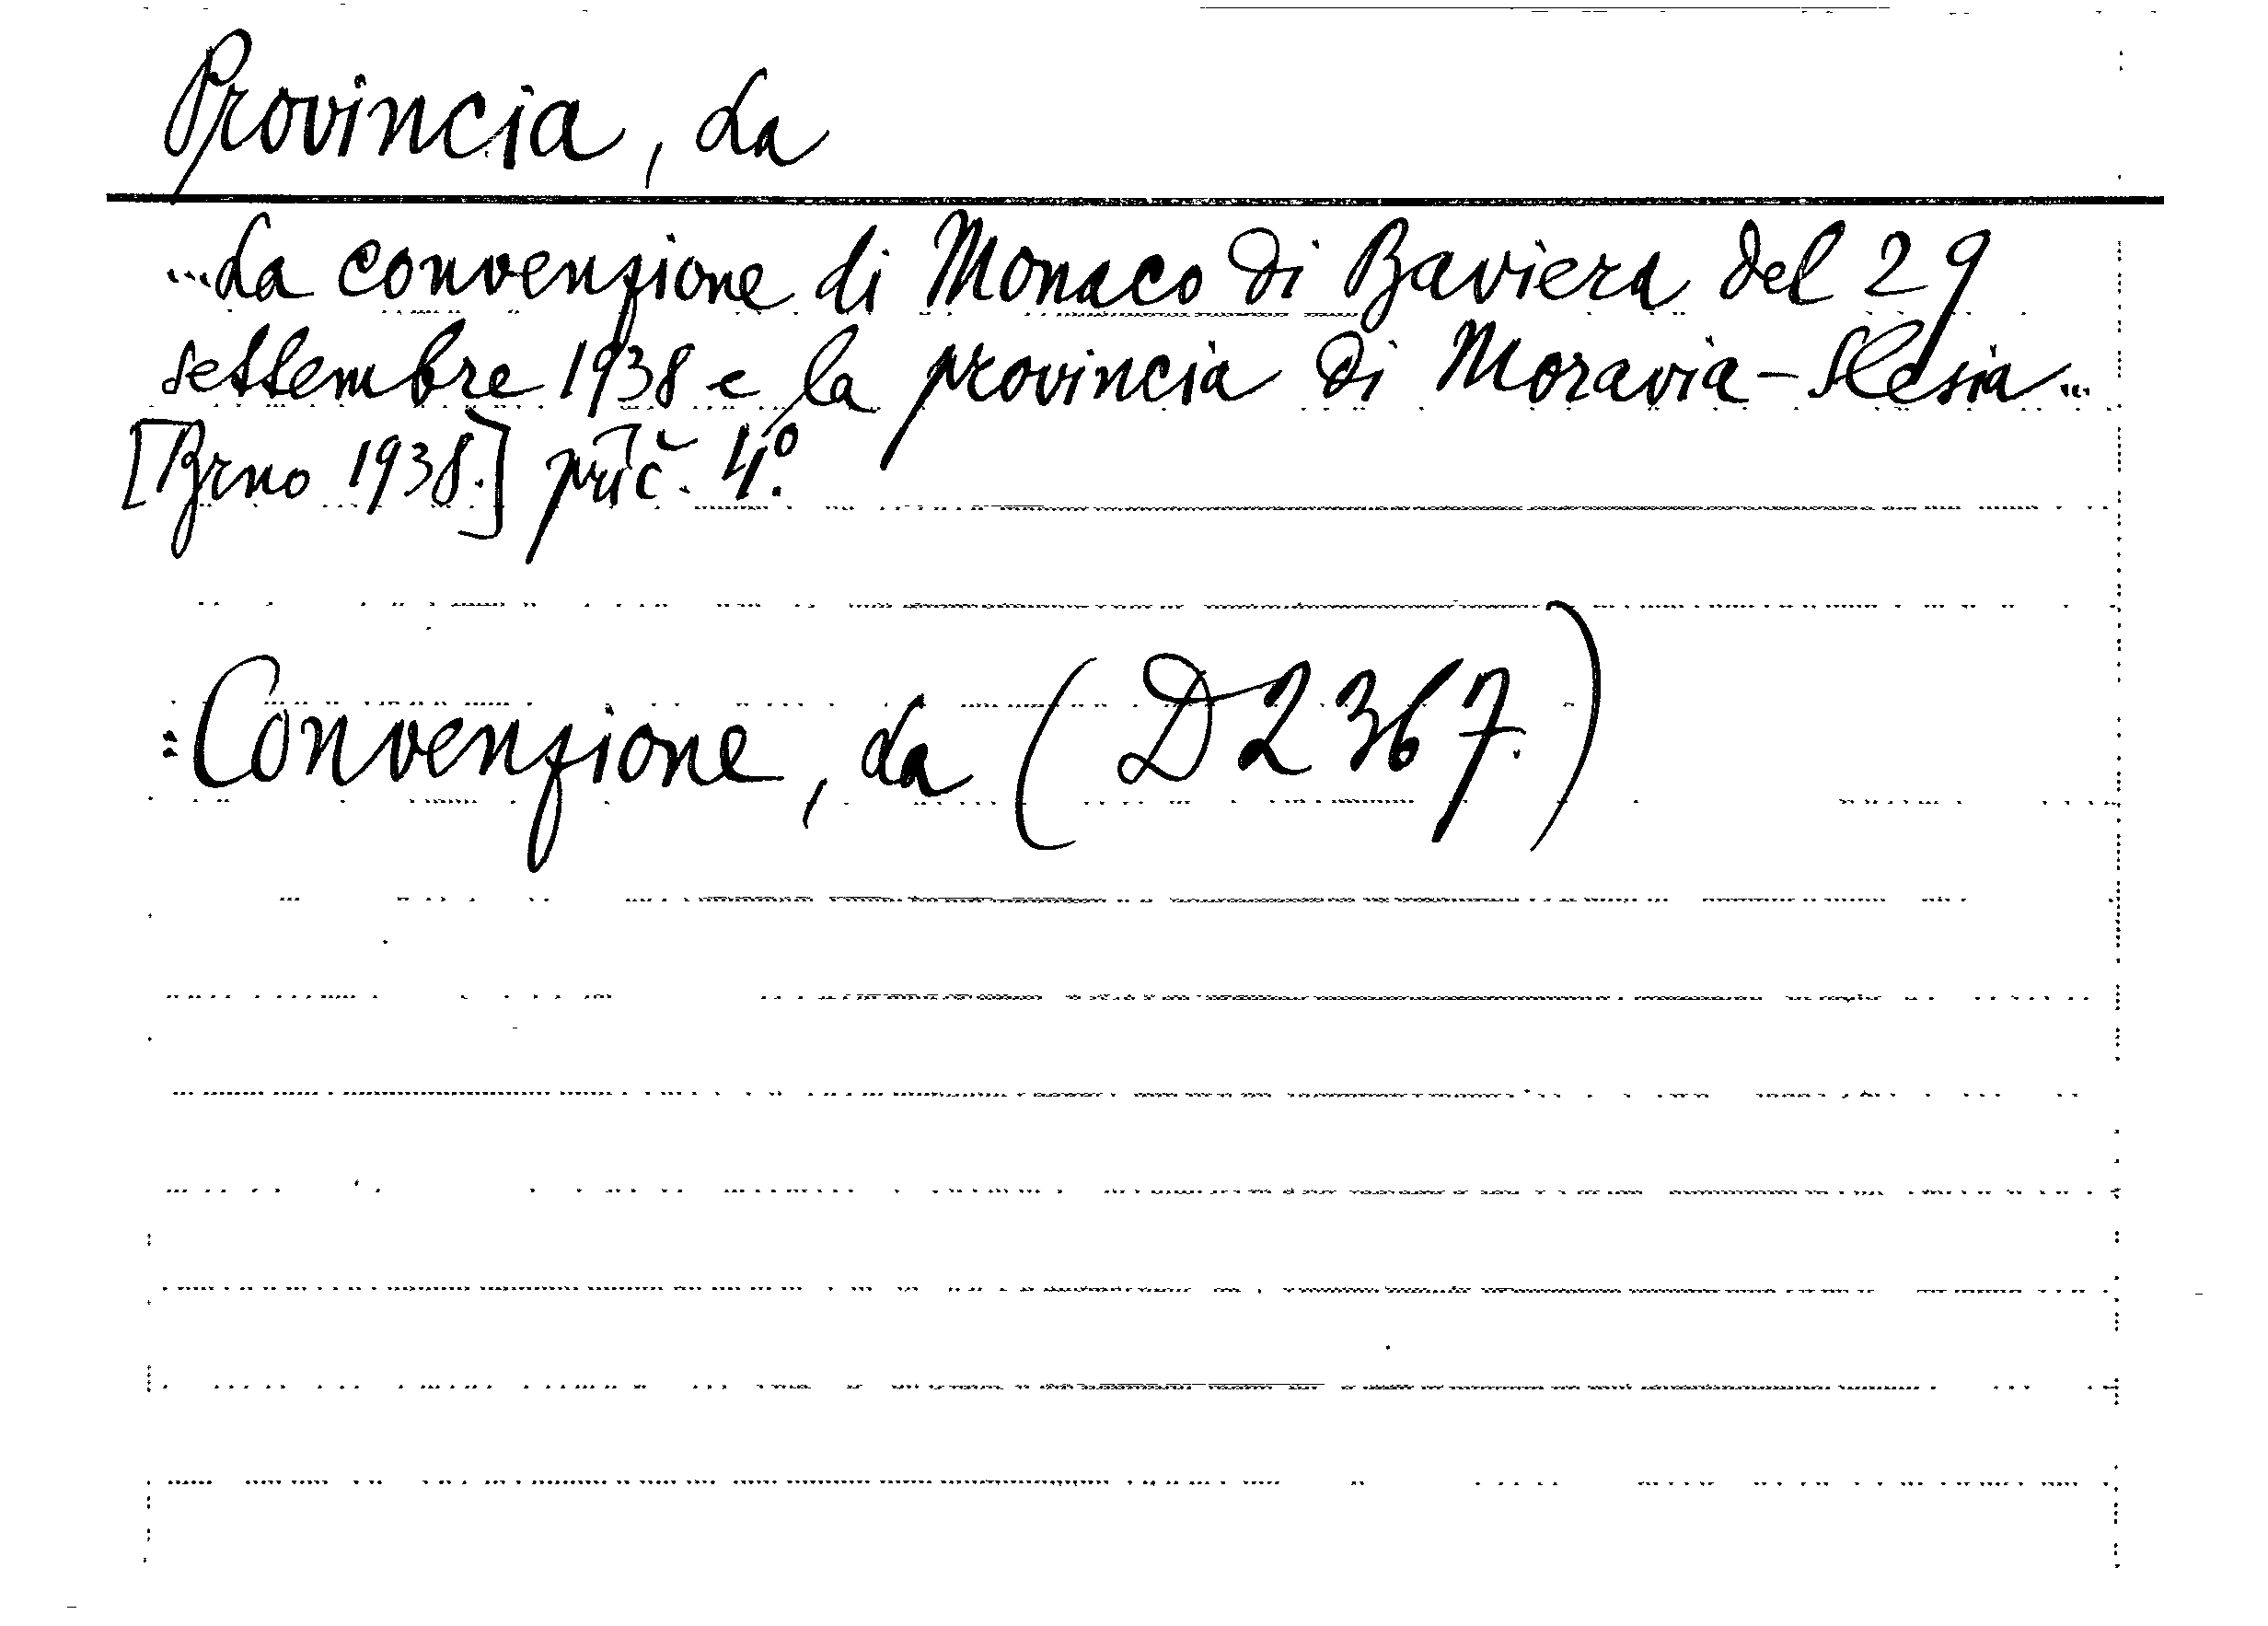 Provincia, La
...La convenzione di Monaco di Baviera del 29
settembre 1938 e la provincia di Moravia-Slesia...
[Brno 1938.] příč. 4°.
=Convenzione, La (D2367.)